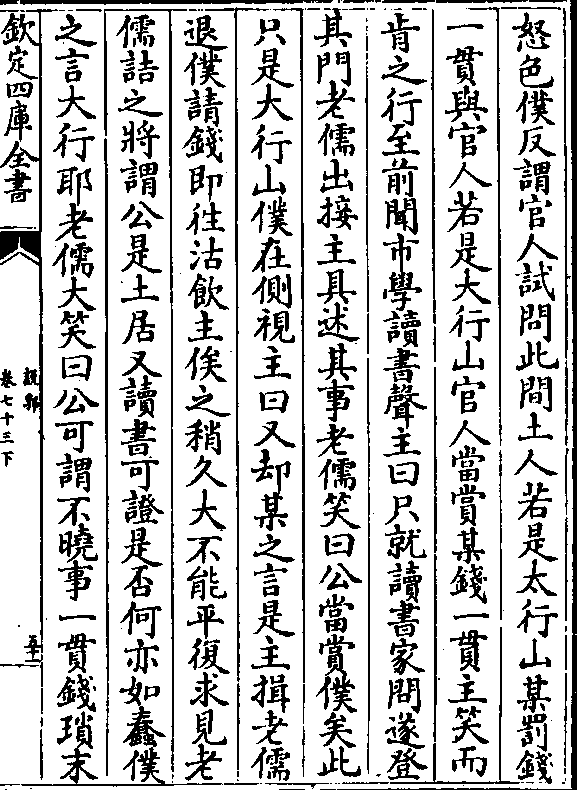 怒色僕反謂官人試問此間土人若是太行山某罰錢
一貫與官人若是大行山官人當賞某錢一貫主笑而
肯之行至前聞市學讀書聲主曰只就讀書家問遂登
其門老儒出接主具述其事老儒笑曰公當賞僕矣此
只是大行山僕在側視主曰又却某之言是主揖老儒
退僕請錢即往沽飲主俟之稍久大不能平復求見老
儒詰之將謂公是土居又讀書可證是否何亦如蠢僕
之言大行耶老儒大笑曰公可謂不曉事一貫錢瑣末
欽定四庫全書
說郛
卷七十三下